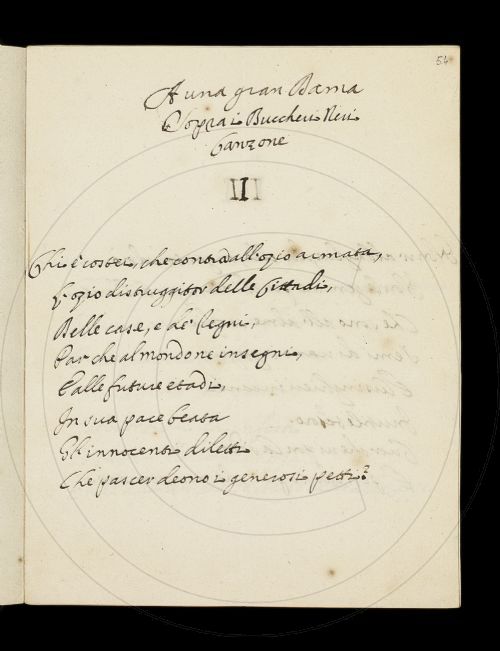 54
A una gran Dama
Sopra i Buccheri Neri
Canzone
III
Chi è costei, che contro all'ozio armata,
L'ozio distruggitor delle Cittadi,
Delle case, e de' Regni,
Par che al mondo ne insegni,
E alle future etadi,
In sua pace beata
Gl'innocenti diletti
Che pascer deono i generosi petti?